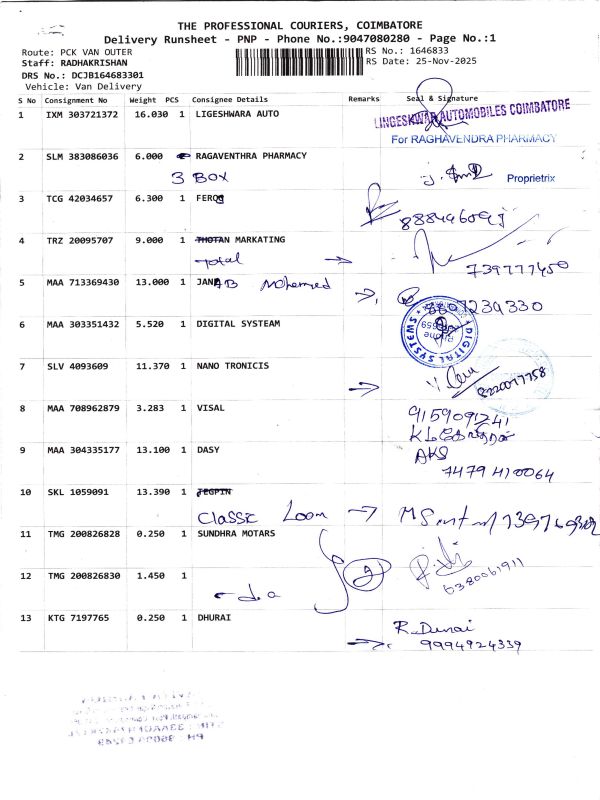 THE PROFESSIONAL COURIERS, COIMBATORE
Delivery Runsheet - PNP - Phone No.:9047080280 - Page No.:1
Route: PCK VAN OUTER
RS No.: 1646833
Staff: RADHAKRISHAN
RS Date: 25-Nov-2025
DRS No.: DCJB164683301
Vehicle: Van Delivery
S No Consignment No Weight PCS Consignee Details Remarks Seal & Signature
1 IXM 303721372 16.030 1 LIGESHWARA AUTO
LINGESHWAR AUTOMOBILES COIMBATORE
For RAGHAVENDRA PHARMACY
2 SLM 383086036 6.000 RAGAVENTHRA PHARMACY
3 BOX
Proprietrix
3 TCG 42034657 6.300 1 FEROS
4 TRZ 20095707 9.000 1 THOTAN MARKATING
Total
739777450
5 MAA 713369430 13.000 1 JANAB Mohemed
8807239330
6 MAA 303351432 5.520 1 DIGITAL SYSTEAM
DIGITAL SYSTEMS
Phone
7 SLV 4093609 11.370 1 NANO TRONICIS
8220077758
8 MAA 708962879 3.283 1 VISAL
9159091241
9 MAA 304335177 13.100 1 DASY
AKS
7479410064
10 SKL 1059091 13.390 1 JEGPIN
Classic Loom
11 TMG 200826828 0.250 1 SUNDHRA MOTARS
12 TMG 200826830 1.450 1
-do
2
6380061911
13 KTG 7197765 0.250 1 DHURAI
R. Durai
9994924339